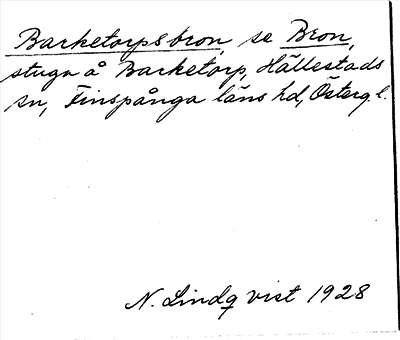 Barketorpsbron, se Bron,
stuga å Barketorp, Hällestads
sn, Finspånga läns hd, Österg. l.
N. Lindqvist 1928